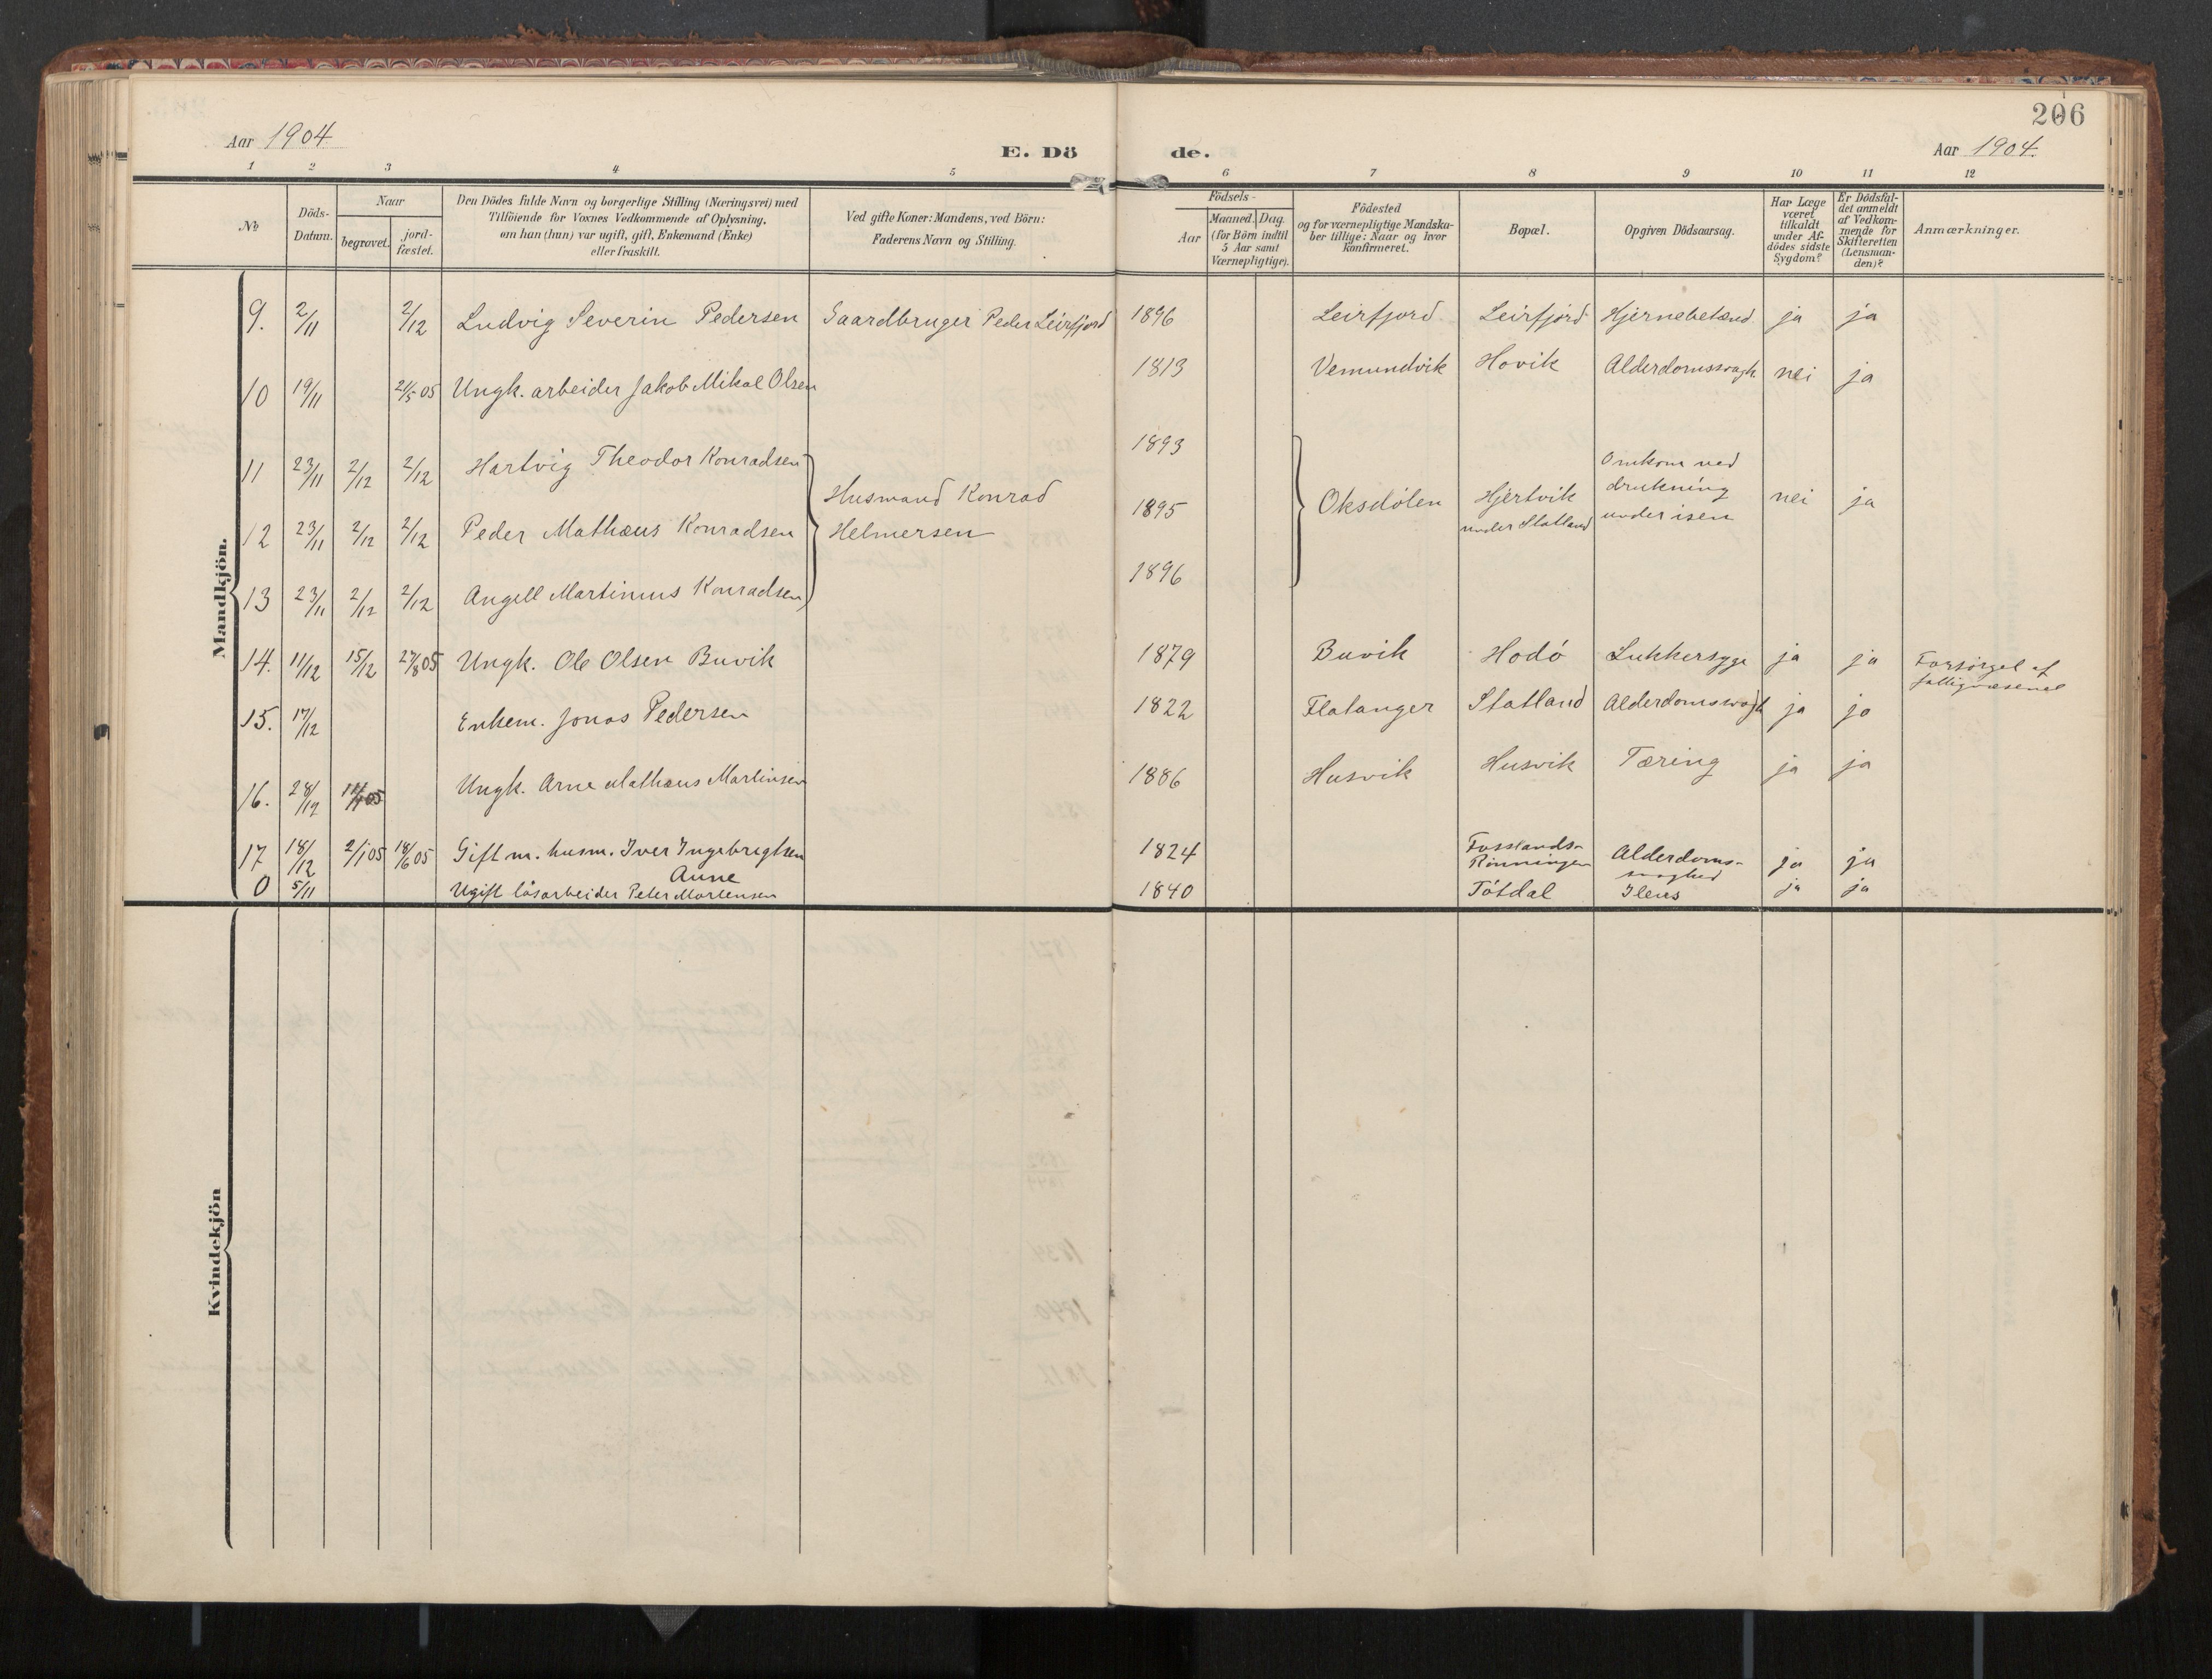 206
Aar 1904
E. Dö de.
Aar 1904.
1 2 3 4 5 6 7 8 9 10 11 12
No
Döds-Datum.
Naar
begravet.
jord-fæstet.
Den Dödes fulde Navn og borgerlige Stilling (Næringsvei) med
Tilföiende for Voxnes Vedkommende af Oplysning,
om han (hun) var ugift, gift, Enkemand (Enke)
eller fraskilt.
Ved gifte Koner: Mandens, ved Börn:
Faderens Navn og Stilling.
Födsels-
Aar
Maaned. Dag.
(for Börn indtil
5 Aar samt
Værnepligtige).
Födested
og for værnepligtige Mandska-
ber tillige: Naar og hvor
konfirmeret.
Bopæl.
Opgiven Dödsaarsag.
Har Læge
været
tilkaldt
under Af-
dödes sidste
Sygdom?
Er Dödsfal-
det anmeldt
af Vedkom-
mende for
Skifteretten
(Lensman-
den)?
Anmærkninger.
Mandkjön.
9. 2/11 2/12 Ludvig Severin Pedersen Gaardbruger Peder Leirfjord 1896 Leirfjord Leirfjord Hjernebetænd. ja ja
10 19/11 21/5 05 Ungk. arbeider Jakob Mikal Olsen 1813 Vemundvik Hovik Alderdomssvagh. nei ja
11 23/11 2/12 2/12 Hartvig Theodor Konradsen 1893
Husmand Konrad
Helmersen
12 23/11 2/12 2/12 Peder Mathæus Konradsen 1895 Oksdölen Hjertvik
under Statland
Omkom ved
drukning
under isen
nei ja
13 23/11 2/12 2/12 Angell Martinius Konradsen 1896
14. 11/12 15/12 27/8 05 Ungk. Ole Olsen Buvik 1879 Buvik Hodö Sukkersyge ja ja Forsörget af
fattigvæsenet
15. 17/12 Enkem. Jonas Pedersen 1822 Flatanger Statland Alderdomssvagh ja ja
16. 28/12 Ungk. Arne Mathæus Martinsen 1886 Husvik Husvik Tæring ja ja
17 18/12 2/1 05 18/6 05 Gift m. husm. Iver Ingebrigtsen
Aune
1824 Fosslands-
Rönningen
Alderdoms-
svaghed
ja ja
0 5/11 Ugift lösarbeider Peter Mortensen 1840 Tötdal Ileus ja ja
Kvindekjön